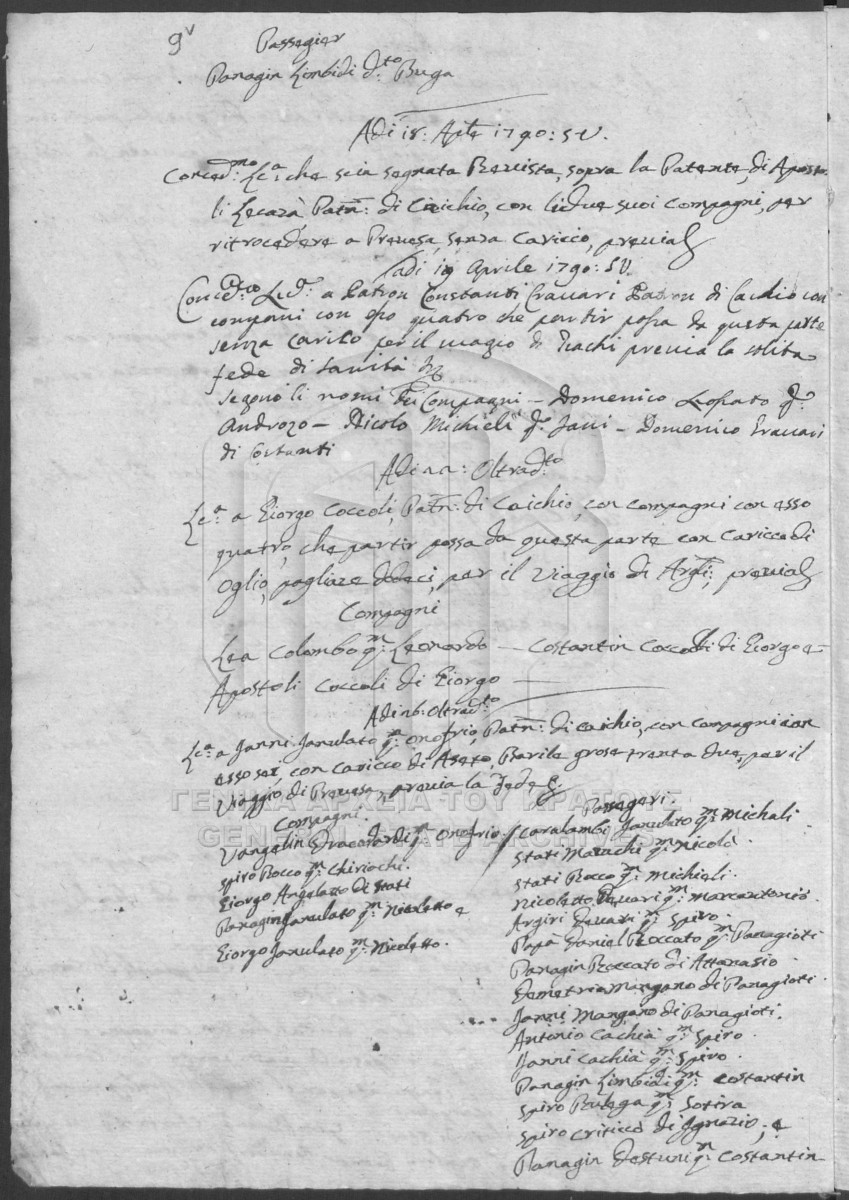 9v
Passegier
Panagin Limbidi d:to Buga
Adi 18: Aple 1790: S.V.
Conced:mo Lca: che seia segnata Revista, sopra la Patente, di Aposto
li Lecazà Patn: di Caichio, con li due suoi Compagni, per
ritrocedere a Prevesa, senza Caricco, previa
adi 19 Aprile 1790: SV.
Conced:mo Lca: a Patron Constanti Cravari Patron di Caichio con
compagni con esso quatro che partir possa da questa parte
senza Carico per il viagio di Itachi previa la solita
fede di Sanità
segono li nomi dei Compagni – Domenico q:
Androzo – Nicolo Michieli q: Jani – Domenico Cravari
di Costanti
Adi Oltrad:to
Lca: a Giorgo Coccoli, Patn: di Caichio, con compagni con esso
quatro, che partir possa da questa parte con Caricco di
Oglio, pagliaze dodeci, per il Viaggio di previa
Compagni
Lea Colombo qm: Leonardo — Costantin Coccoli di Giorgo e
Apostoli Coccoli di Giorgo —
Adi Oltrad:to
Lca: a Janni Janulato qm: Onofrio, Patn: di caichio, con compagni con
esso sei, con Caricco di Aseto, Barile grose trenta due, per il
Viaggio di Prevesa, previa la Fede
Compagni.
Vangelin Dracardi qm: Onofrio
Spiro Rocco qm: Chiriachi.
Giorgo Angelato di Stati
Panagin Janulato qm: Nicoletto e
Giorgo Janulato qm: Nicoletto.
Passegeri
Caralambi Janulato qm: Michali
Stati Marachi qm: Nicolò.
Stati Rocco qm: Michieli.
Nicoletto Devari qm: Marcantonio.
Argiri Devari qm: Spiro.
Papà Daniel Roccato qm: Panagioti
Panagin Roccato di Attanasio
Demetrio Mangano di Panagioti.
Janni Mangano di Panagioti.
Antonio Cachià qm: Spiro.
Janni Cachià qm: Spiro.
Panagin Limbidi qm: Costantin
Spiro Bulega qm: Sotira
Spiro Criticò di Ignazio, e
Panagin Destuni qm: Costantin
ΓΕΝΙΚΑ ΑΡΧΕΙΑ ΤΟΥ ΚΡΑΤΟΥΣ
GENERAL STATE ARCHIVES